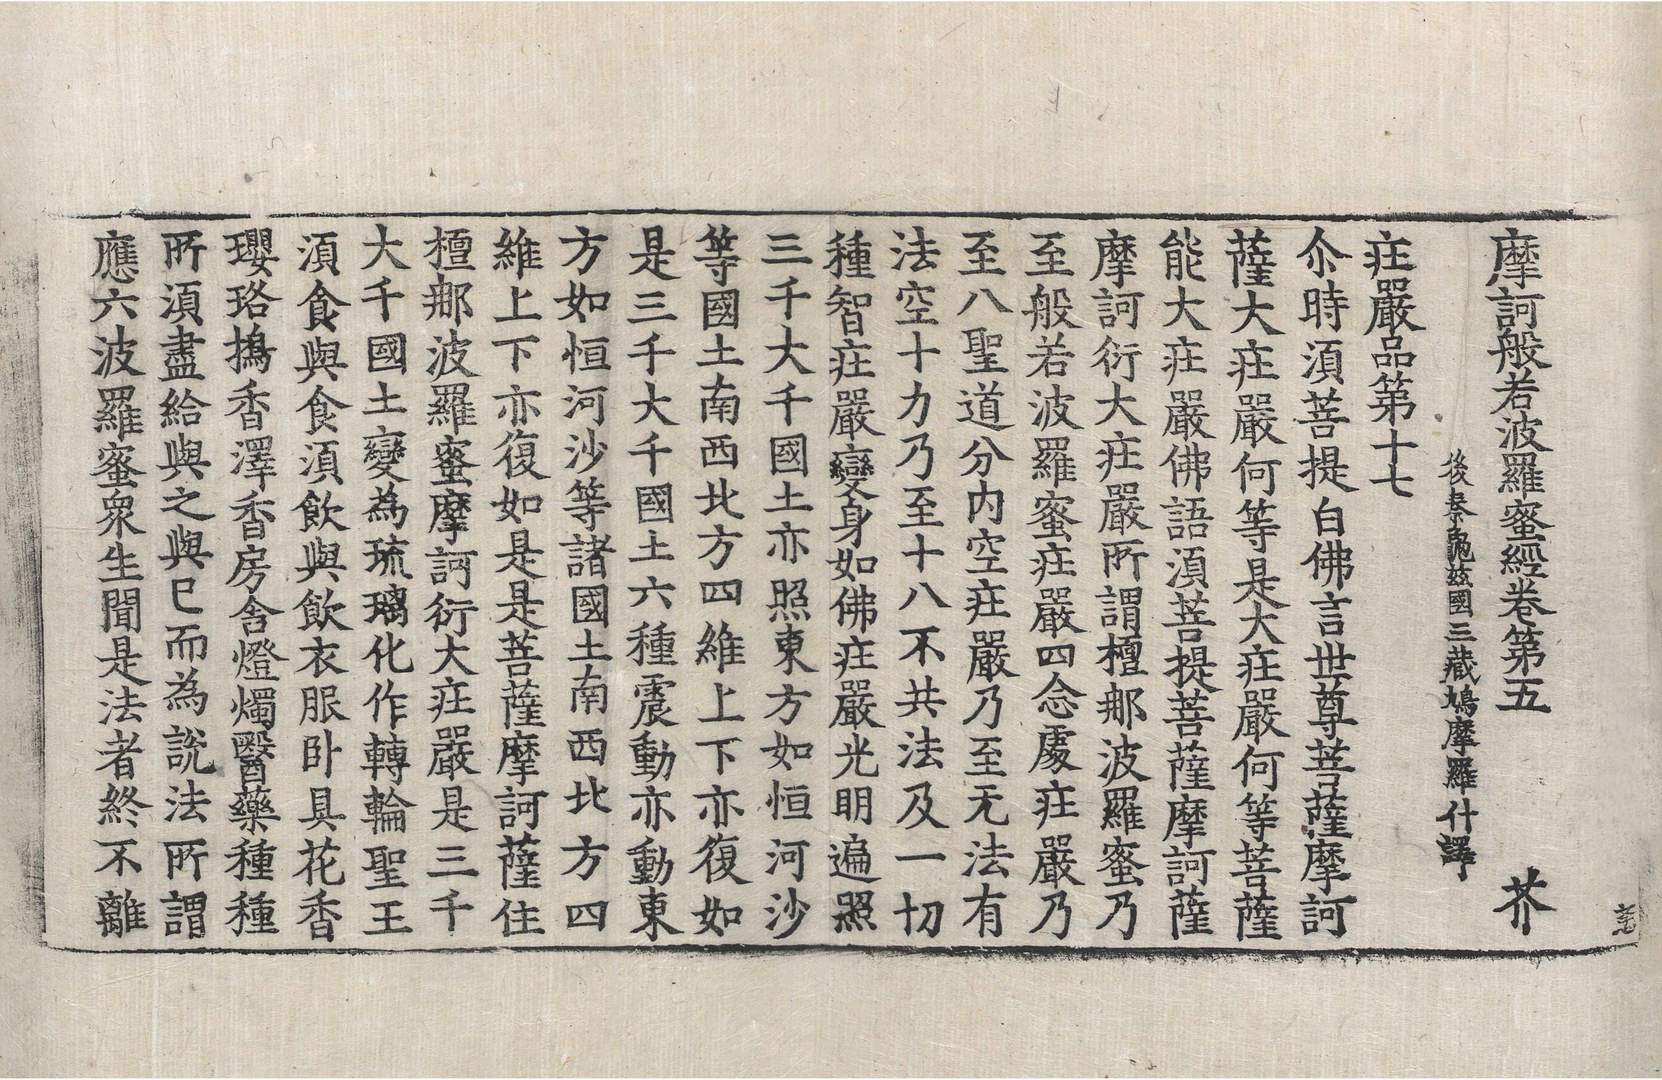 摩訶般若波羅蜜經卷第五 芥
後秦龜茲國三藏鳩摩羅什譯
庄嚴品第十七
尒時湏菩提白佛言世尊菩薩摩訶
薩大庄嚴何等是大庄嚴何等菩薩
能大庄嚴佛語湏菩提菩薩摩訶薩
摩訶衍大庄嚴所謂檀那波羅蜜乃
至般若波羅蜜庄嚴四念處庄嚴乃
至八聖道分內空庄嚴乃至无法有
法空十力乃至十八不共法及一切
種智庄嚴變身如佛庄嚴光明遍照
三千大千國土亦照東方如恒河沙
等國土南西北方四維上下亦復如
是三千大千國土六種震動亦動東
方如恒河沙等諸國土南西北方四
維上下亦復如是是菩薩摩訶薩住
檀那波羅蜜摩訶衍大庄嚴是三千
大千國土變為琉璃化作轉輪聖王
湏食與食湏飲與飲衣服卧具花香
瓔珞擣香澤香房舍燈燭醫藥種種
所湏盡給與之與已而為說法所謂
應六波羅蜜衆生聞是法者終不離